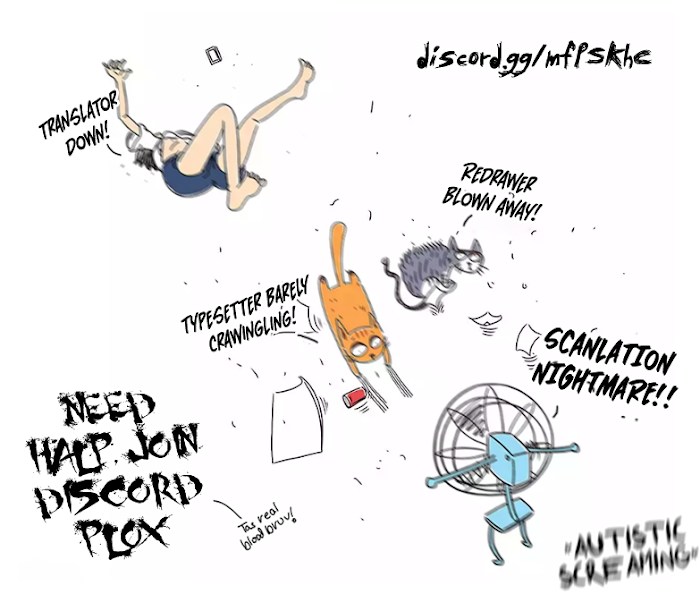 discord.gg/mffskhc
TRANSLATOR
DOWN!
REDRAWER
BLOWN AWAY!
TYPESETTER BARELY
CRAWINGLING!
SCANLATION
NIGHTMARE!!
NEED
HALP. JOIN
DISCORD
PLOX
Tas real
blood bruv!
"AUTISTIC
SCREAMING"